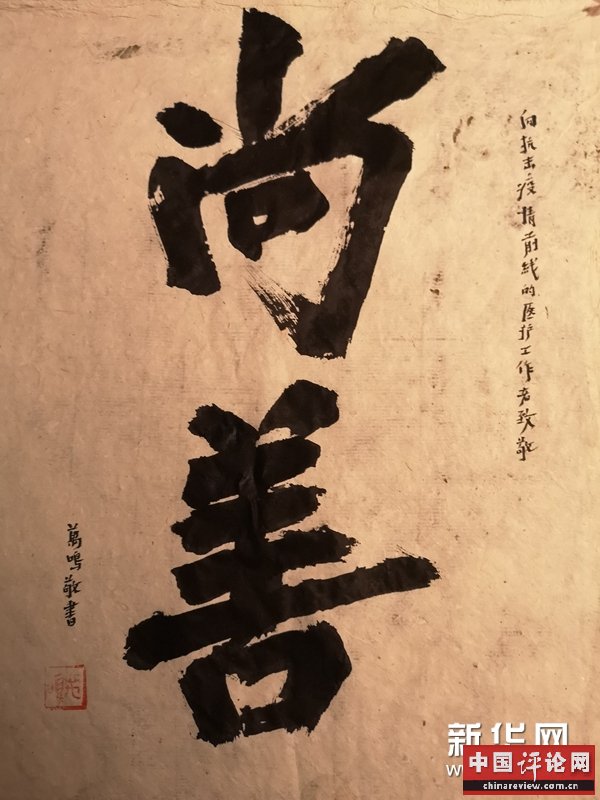 尚善
向抗击疫情前线的医护工作者致敬
萬鸣敬書
新华网
w
中国评论网
chinareview.com.cn